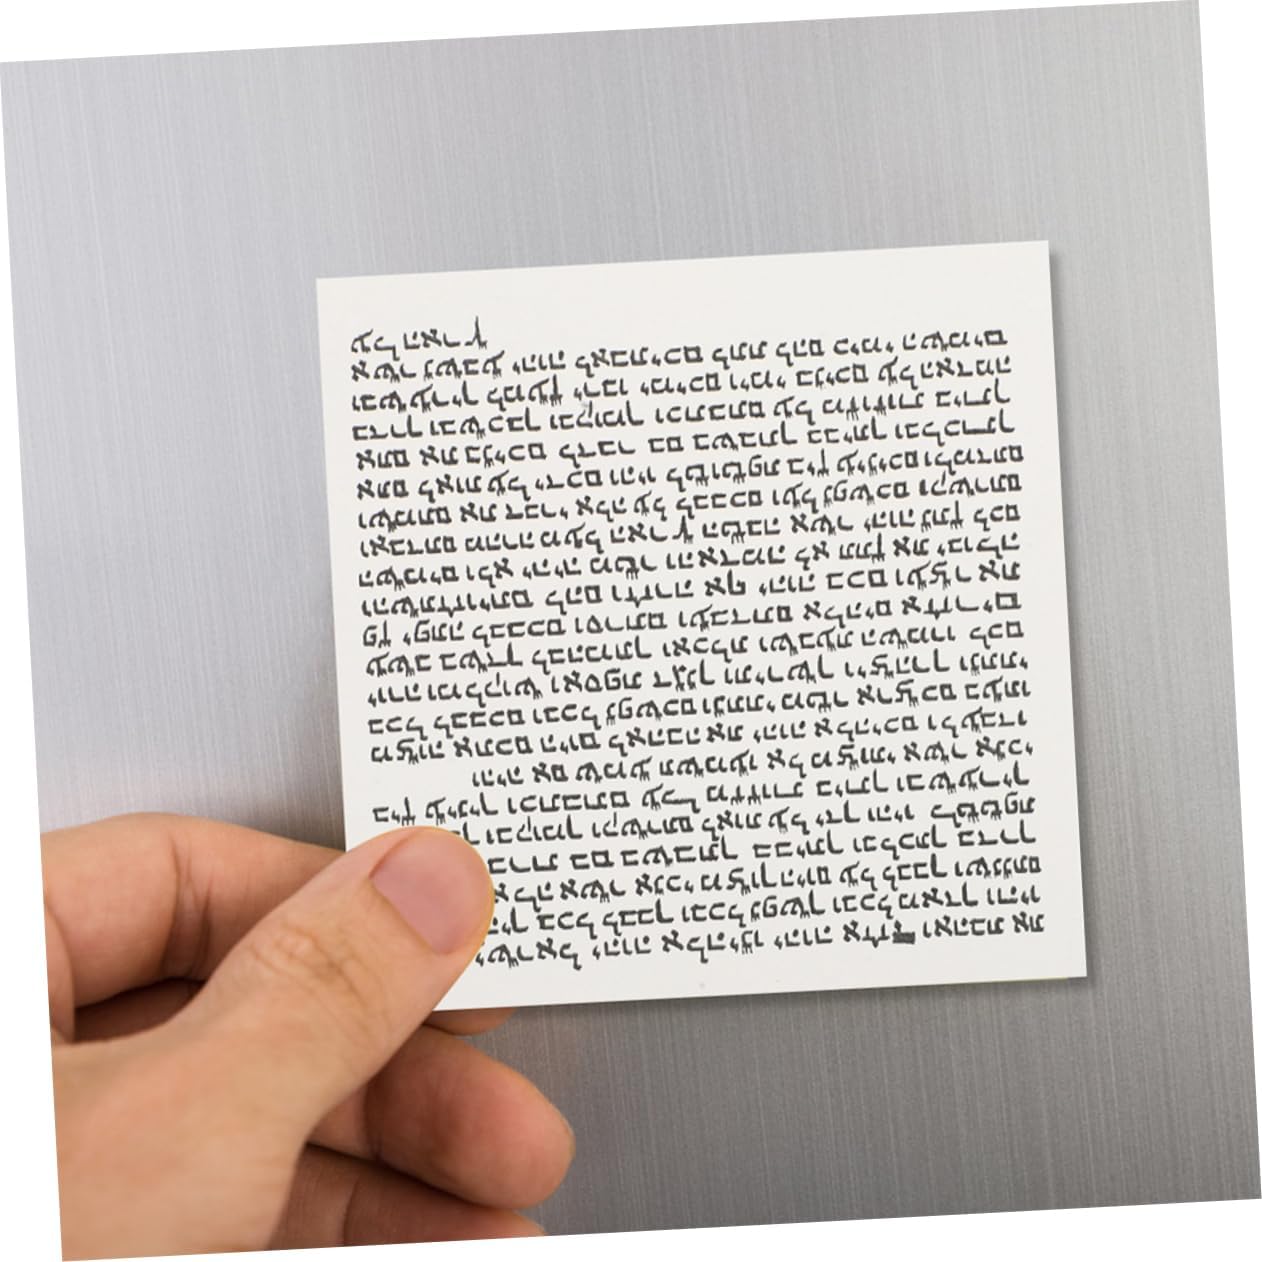 ישראל יהוה אלהינו יהוה אחד ואהבת את
בכל לבבך ובכל נפשך ובכל מאדך והיו
האלה אשר אנכי מצוך היום על לבבך ושננתם
ודברת בם בשבתך בביתך ובלכתך בדרך
ובקומך וקשרתם לאות על ידך והיו לטטפת
בין עיניך וכתבתם על מזזות ביתך ובשעריך
והיה אם שמע תשמעו אל מצותי אשר אנכי
מצוה אתכם היום לאהבה את יהוה אלהיכם ולעבדו
בכל לבבכם ובכל נפשכם ונתתי מטר ארצכם בעתו
יורה ומלקוש ואספת דגנך ותירשך ויצהרך ונתתי
עשב בשדך לבהמתך ואכלת ושבעת השמרו לכם
פן יפתה לבבכם וסרתם ועבדתם אלהים אחרים
והשתחויתם להם וחרה אף יהוה בכם ועצר את
השמים ולא יהיה מטר והאדמה לא תתן את יבולה
ואבדתם מהרה מעל הארץ הטבה אשר יהוה נתן לכם
ושמתם את דברי אלה על לבבכם ועל נפשכם וקשרתם
אתם לאות על ידכם והיו לטוטפת בין עיניכם ולמדתם
אתם את בניכם לדבר בם בשבתך בביתך ובלכתך
בדרך ובשכבך ובקומך וכתבתם על מזוזות ביתך
ובשעריך למען ירבו ימיכם וימי בניכם על האדמה
אשר נשבע יהוה לאבתיכם לתת להם כימי השמים
על הארץ